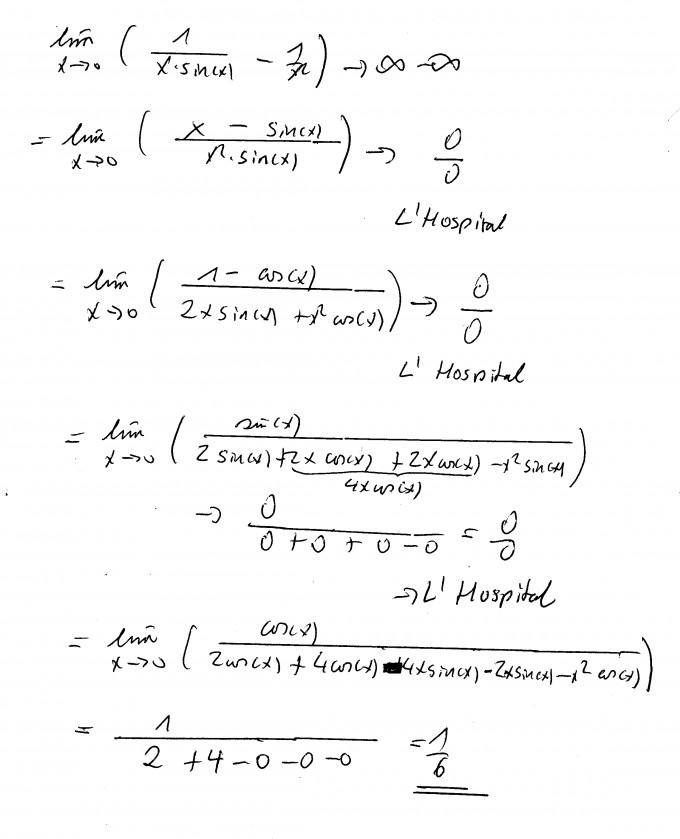 lim x→0 ( 1 / (x·sin(x)) − 1/x² ) → ∞ − ∞
= lim x→0 ( (x − sin(x)) / (x²·sin(x)) ) → 0/0
L'Hospital
= lim x→0 ( (1 − cos(x)) / (2x sin(x) + x² cos(x)) ) → 0/0
L' Hospital
= lim x→0 ( sin(x) / (2 sin(x) + 2x cos(x) + 2x cos(x) − x² sin(x)) )
4x cos(x)
→ 0 / (0 + 0 + 0 − 0) = 0/0
→ L' Hospital
= lim x→0 ( cos(x) / (2cos(x) + 4cos(x) − 4x sin(x) − 2x sin(x) − x² cos(x)) )
= 1 / (2 + 4 − 0 − 0 − 0) = 1/6